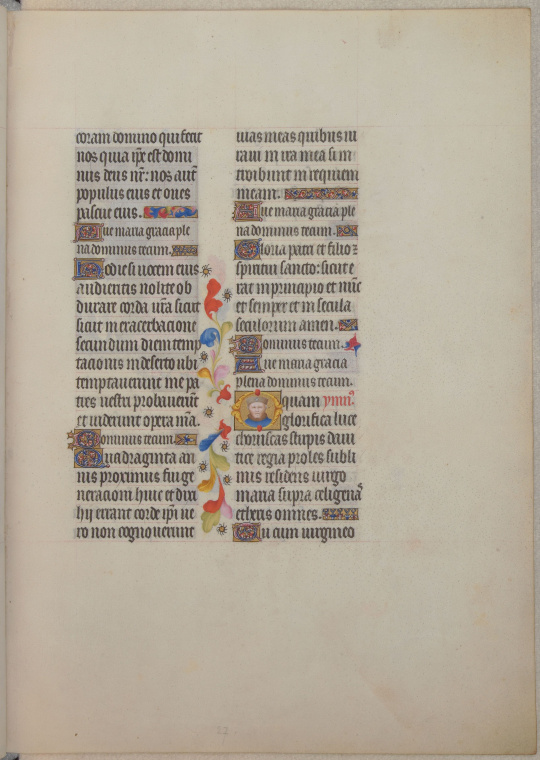 coram domino qui fecit
nos quia ip̄e est domi
nus deus nr̄: nos aut̄
populus eius et oues
pascue eius.
Aue maria gracia ple
na dominus tecum.
Hodie si uocem eius
audieritis nolite ob
durare corda ur̄a sicut
sicut in exacerbacione
secundum diem temp
tacionis in deserto ubi
temptauerunt me pa
tres uestri probauerūt
et uiderunt opera m̄a.
Dominus tecum.
Quadraginta an
nis proximus fui ge
neracioni huic et dixi
hij errant corde ip̄i ue
ro non cognouerunt
uias meas quibus iu
raui in ira mea si in
troibunt in requiem
meam.
Aue maria gracia ple
na dominus tecum.
Gloria patri et filio z
spiritui sancto: sicut e
rat in principio et nūc
et semper et in secula
seculorum amen.
Dominus tecum.
Aue maria gracia
plena dominus tecum.
quam ymn⁹
glorifica luce
choruscas stirpis daui
tice regia proles subli
mis residens uirgo
maria supra celigenas
etheris omnes.
Tu cum uirgineo